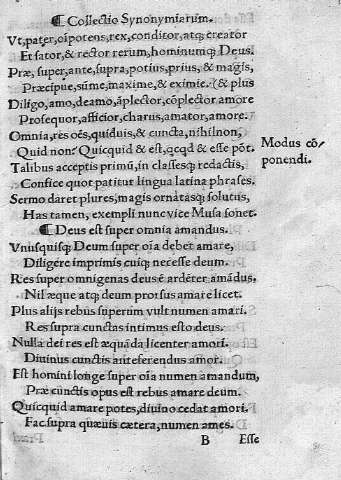 ¶ Collectio Synonymiarum.
Vt, pater, oīpotens, rex, conditor, atqꝫ creator
Et sator, & rector rerum, hominumqꝫ Deus.
Præ, super, ante, supra, potius, prius, & magis,
Præcipue, sūme, maxime, & eximie. (& plus
Diligo, amo, deamo, āplector, cōplector amore
Prosequor, afficior, charus, amator, amore.
Omnia, res oēs, quiduis, & cuncta, nihilnon,
Quid non? Quicquid & est, qcqd & esse pōt.
Modus cō/
ponendi.
Talibus acceptis primū, in classesqꝫ redactis,
Confice quot patitur lingua latina phrases.
Sermo daret plures, magis ornatusqꝫ solutus,
Has tamen, exempli nunc vice Musa sonet.
¶ Deus est super omnia amandus.
Vnusquisqꝫ Deum super oīa debet amare,
Diligere imprimis cuiqꝫ necesse deum.
Res super omnigenas deus ē ardēter amādus,
Nil æque atqꝫ deum prorsus amare licet.
Plus alijs rebus superum vult numen amari.
Res supra cunctas intimus esto deus.
Nulla dei res est æquāda licenter amori.
Diuinus cunctis anteferendus amor.
Est homini longe super oīa numen amandum,
Præ cūnctis opus est rebus amare deum.
Quicquid amare potes, diuino cedat amori.
Fac supra quæuis cætera, numen ames.
B Esse